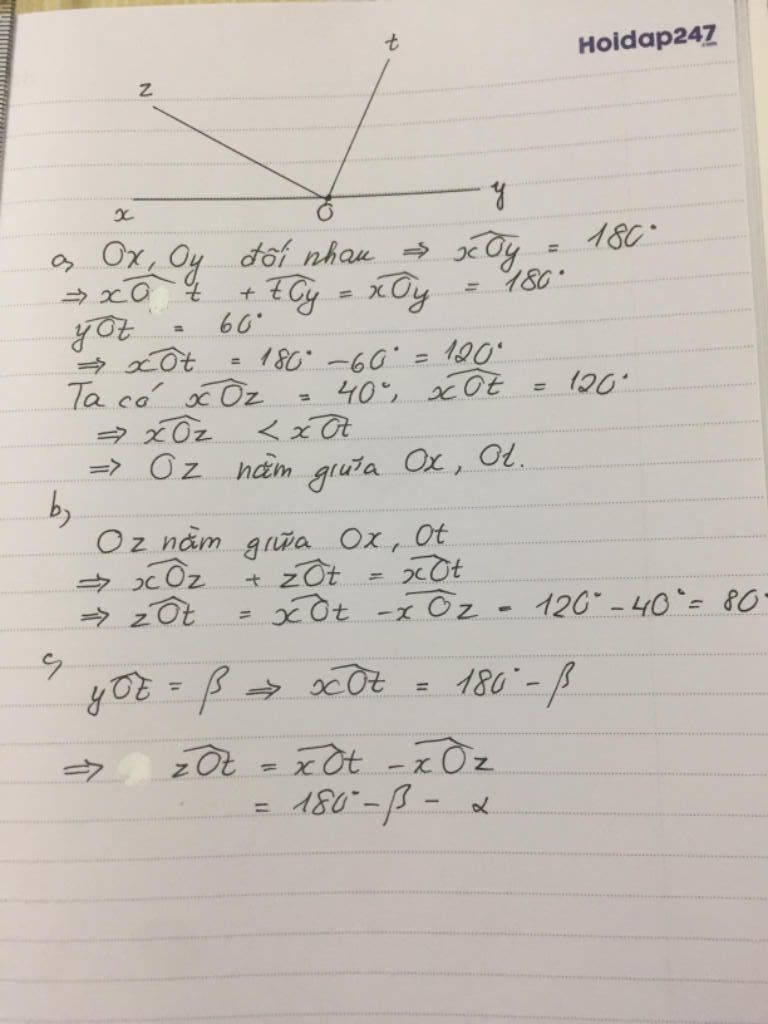 Hoidap247
.com
t
z
x
O
y
a, Ox, Oy đối nhau ⇒ xOy = 180°
⇒ xO t + tOy = xOy = 180°
yOt = 60°
⇒ xOt = 180° - 60° = 120°
Ta có xOz = 40°, xOt = 120°
⇒ xOz < xOt
⇒ Oz nằm giữa Ox, Ot.
b,
Oz nằm giữa Ox, Ot
⇒ xOz + zOt = xOt
⇒ zOt = xOt - xOz = 120° - 40° = 80°
c,
yOt = β ⇒ xOt = 180° - β
⇒ zOt = xOt - xOz
= 180° - β - α